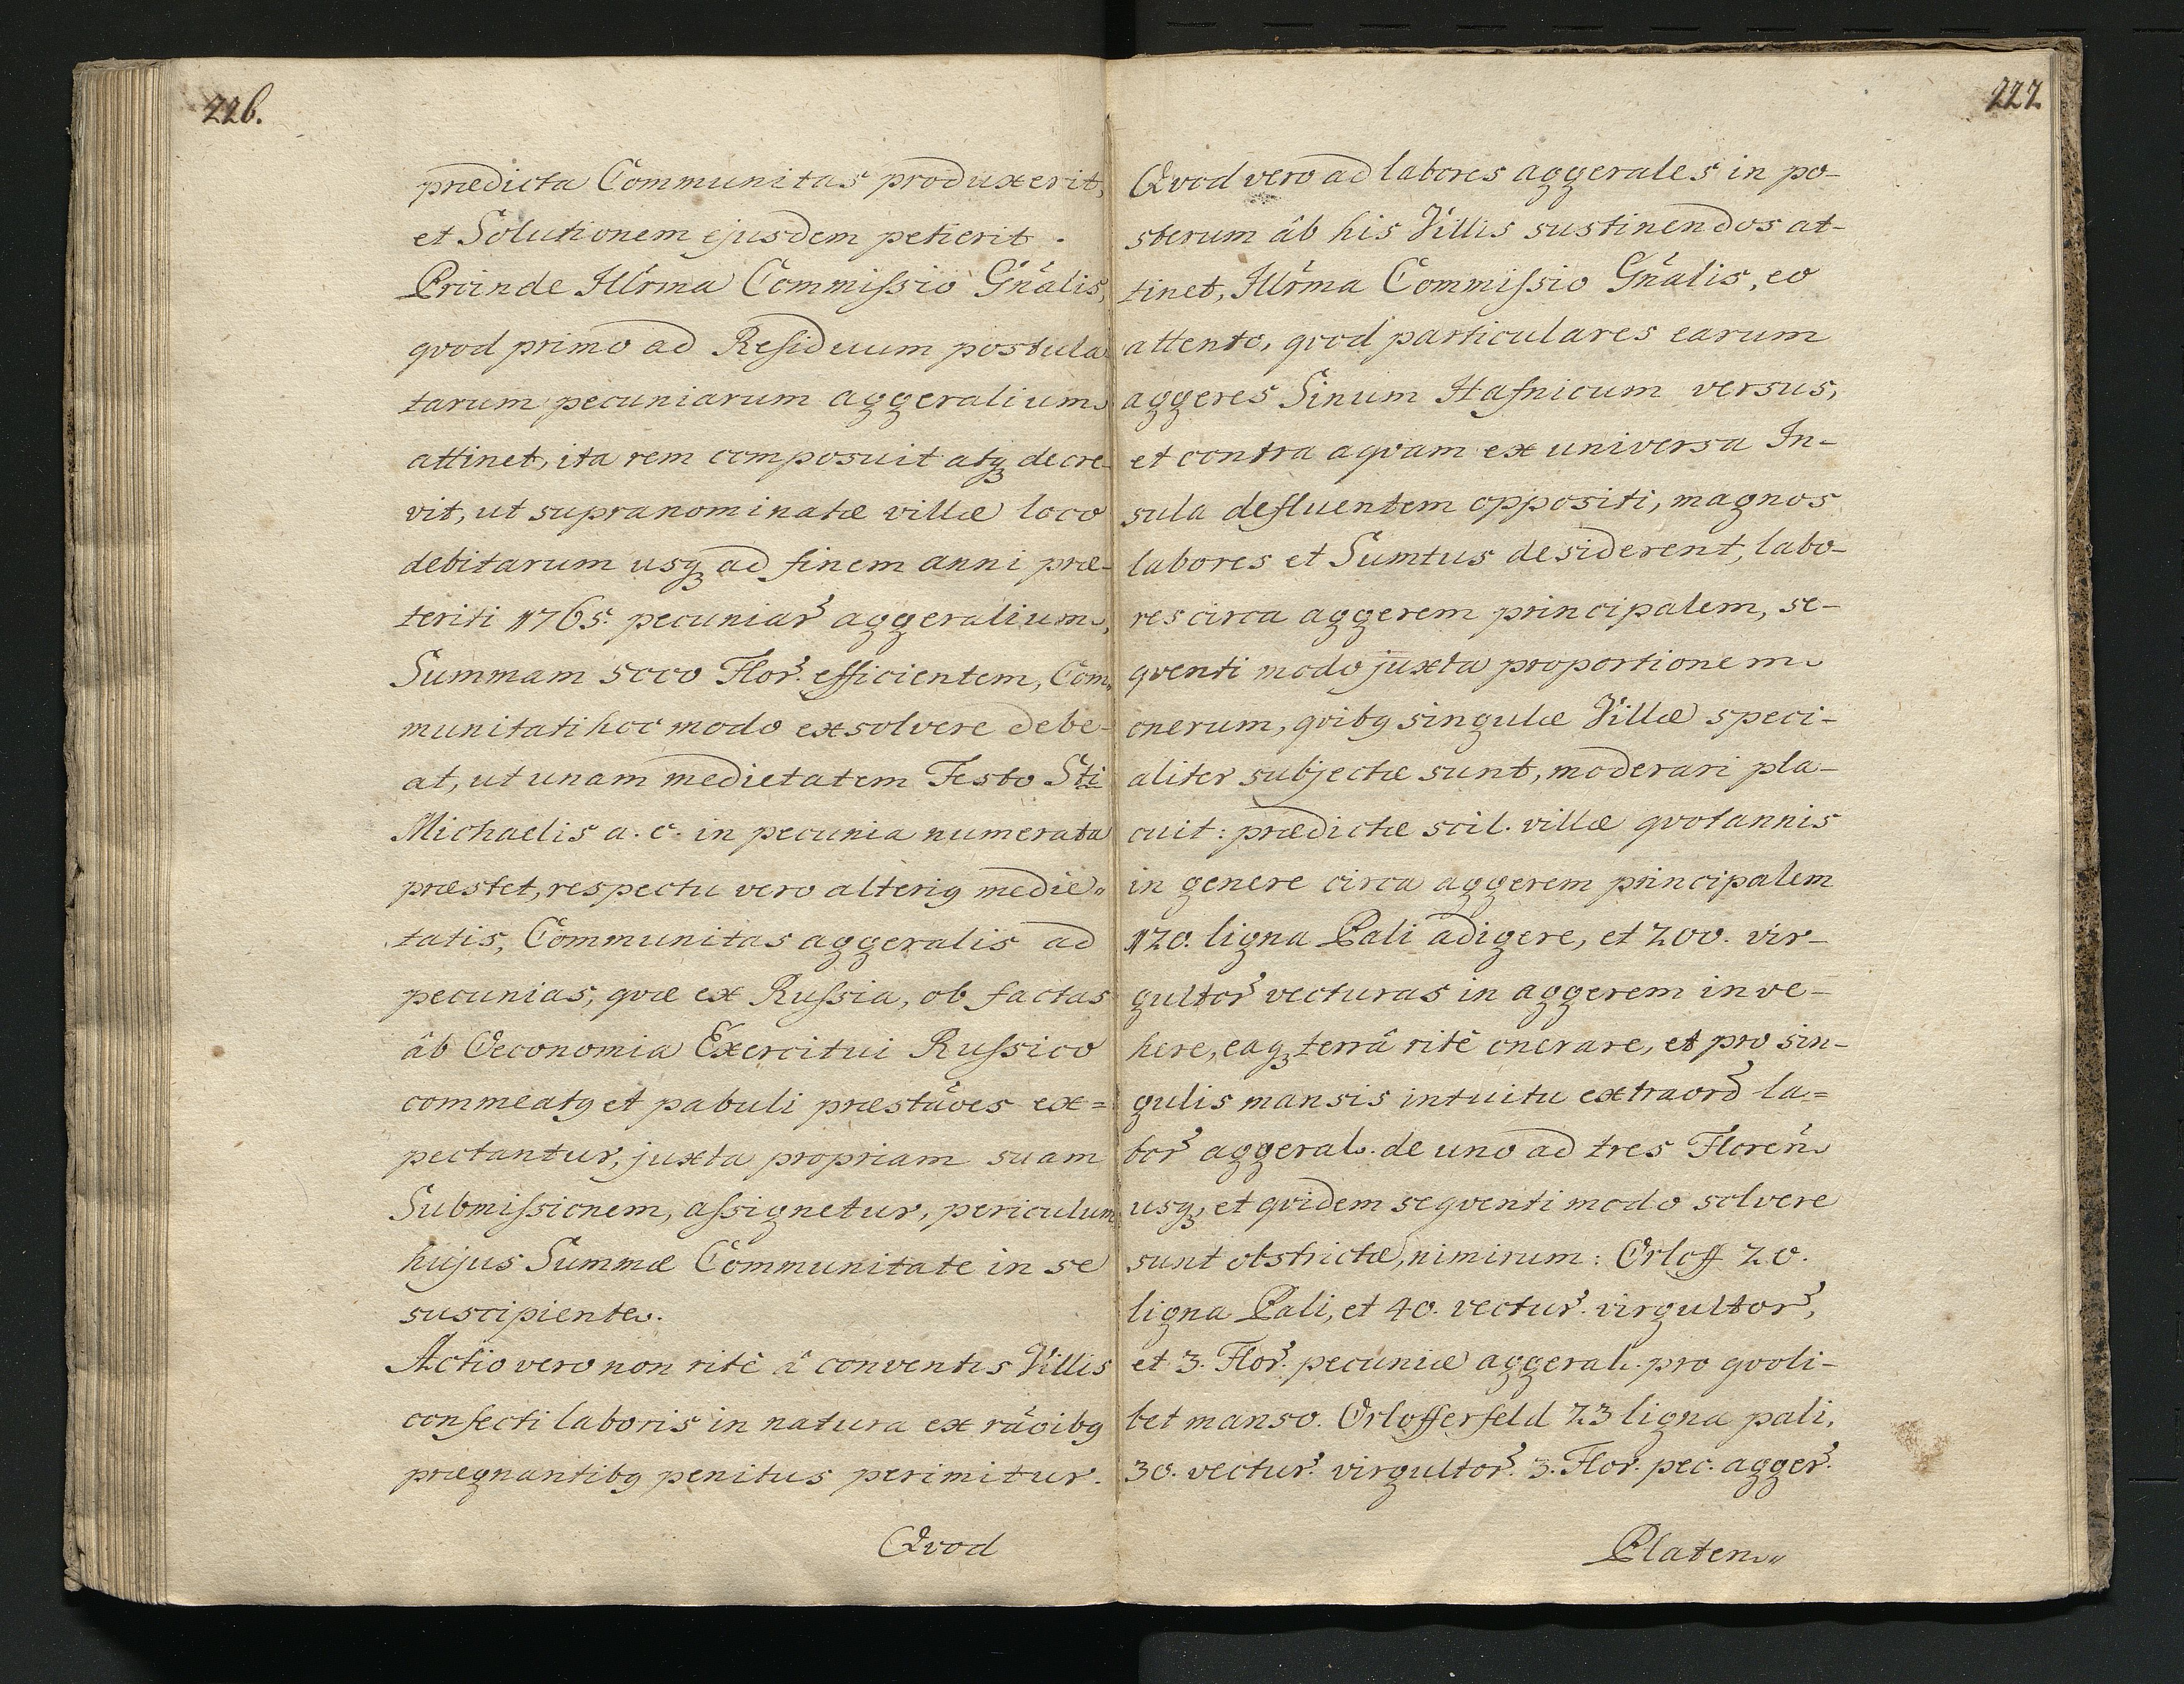 226.
prædicta Communitas produxerit,
et Solutionem ejusdem petierit.
Proinde Illr̃ma Commissio Gñalis,
qvod primo ad Residuum postula-
tarum pecuniarum aggeralium
attinet, ita rem composuit atqꝫ decre-
vit, ut supranominatæ villæ loco
debitarum usqꝫ ad finem anni præ-
teriti 1765. pecuniar̃ aggeralium,
Summam 5000 Flor̃. efficientem, Com-
munitati hoc modo exsolvere debe-
at, ut unam medietatem Festo Sti
Michaelis a. c. in pecunia numerata
præstet, respectu vero alteriꝰ medie-
tatis, Communitas aggeralis ad
pecunias, qvæ ex Russia, ob factas
âb Oeconomia Exercitui Russico
commeatꝰ et pabuli præstãoes ex=
pectantur, juxta propriam suam
Submissionem, assignetur, periculum
hujus Summæ Communitate in se
suscipiente.
Actio vero non ritè â conventis Villis
confecti laboris in natura ex rãoibꝰ
prægnantibꝰ penitus perimitur.
Qvod
227
Qvod vero ad labores aggerales in po-
sterum âb his Villis sustinendos at-
tinet, Illr̃ma Commissio Gñalis, eo
attento, qvod particulares earum
aggeres Sinum Hafnicum versus,
et contra aqvam ex universa In-
sula defluentem oppositi, magnos
labores et Sumtus desiderent, labo-
res circa aggerem principalem, se-
qventi modo juxta proportionem
onerum, qvibꝰ singulæ Villæ speci-
aliter subjectæ sunt, moderari pla-
cuit: prædictæ scil. villæ qvotannis
in genere circa aggerem principalem
120. ligna Pali adigere, et 200. vir-
gultor̃ vecturas in aggerem inve-
here, eaqꝫ terrâ ritè onerare, et pro sin-
gulis mansis intuitu extraord̃ la=
bor̃ aggeral. de uno ad tres Floreñ
usqꝫ, et qvidem seqventi modo solvere
sunt obstrictæ, nimirum: Orloff 20.
ligna Pali, et 40. vectur̃. virgultor̃,
et 3. Flor̃. pecuniæ aggeral. pro qvoli-
bet manso. Orlofferfeld 23 ligna pali,
30. vectur̃. virgultor̃. 3. Flor̃. pec. agger̃.
Platen-